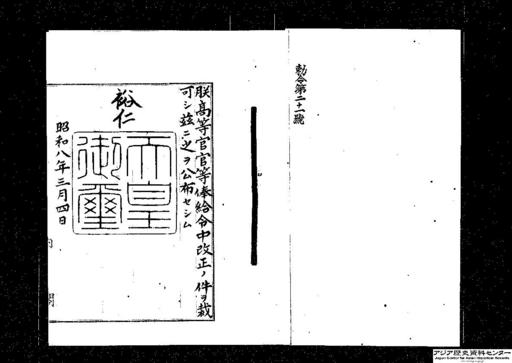 勅令第二十一號
朕高等官官等俸給令中改正ノ件ヲ裁
可シ玆ニ之ヲ公布セシム
裕仁
天皇御璽
昭和八年三月四日
内 閣
アジア歴史資料センター
Japan Center for Asian Historical Records